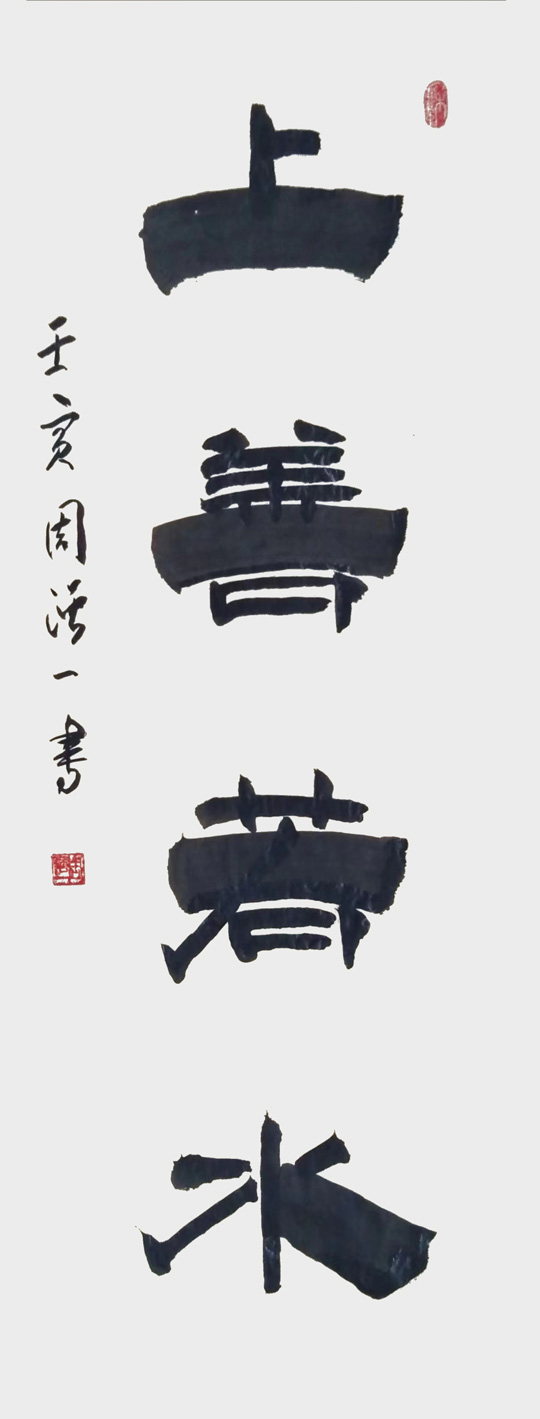 上善若水
壬寅周强一书